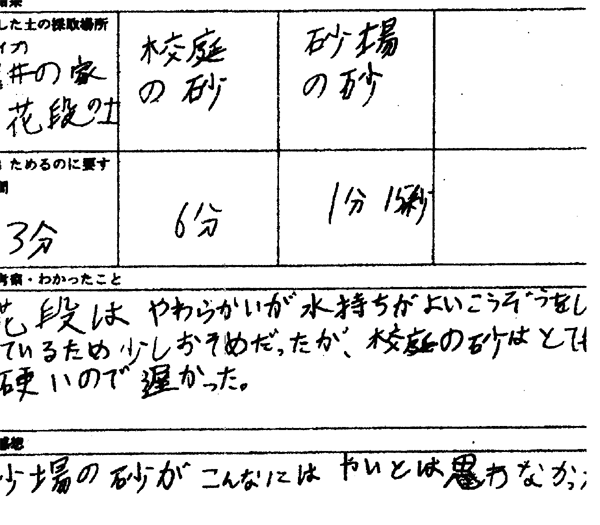 結果
した土の採取場所
イプ)
井の家
花段の土
校庭
の砂
砂場
の砂
ためるのに要す
間
3分
6分
1分 15秒
考察・わかったこと
花段は やわらかいが水持ちがよいこうぞうをし
ているため少しおそめだったが、校庭の砂はとても
硬いので遅かった。
感想
砂場の砂がこんなにはやいとは思わなかった